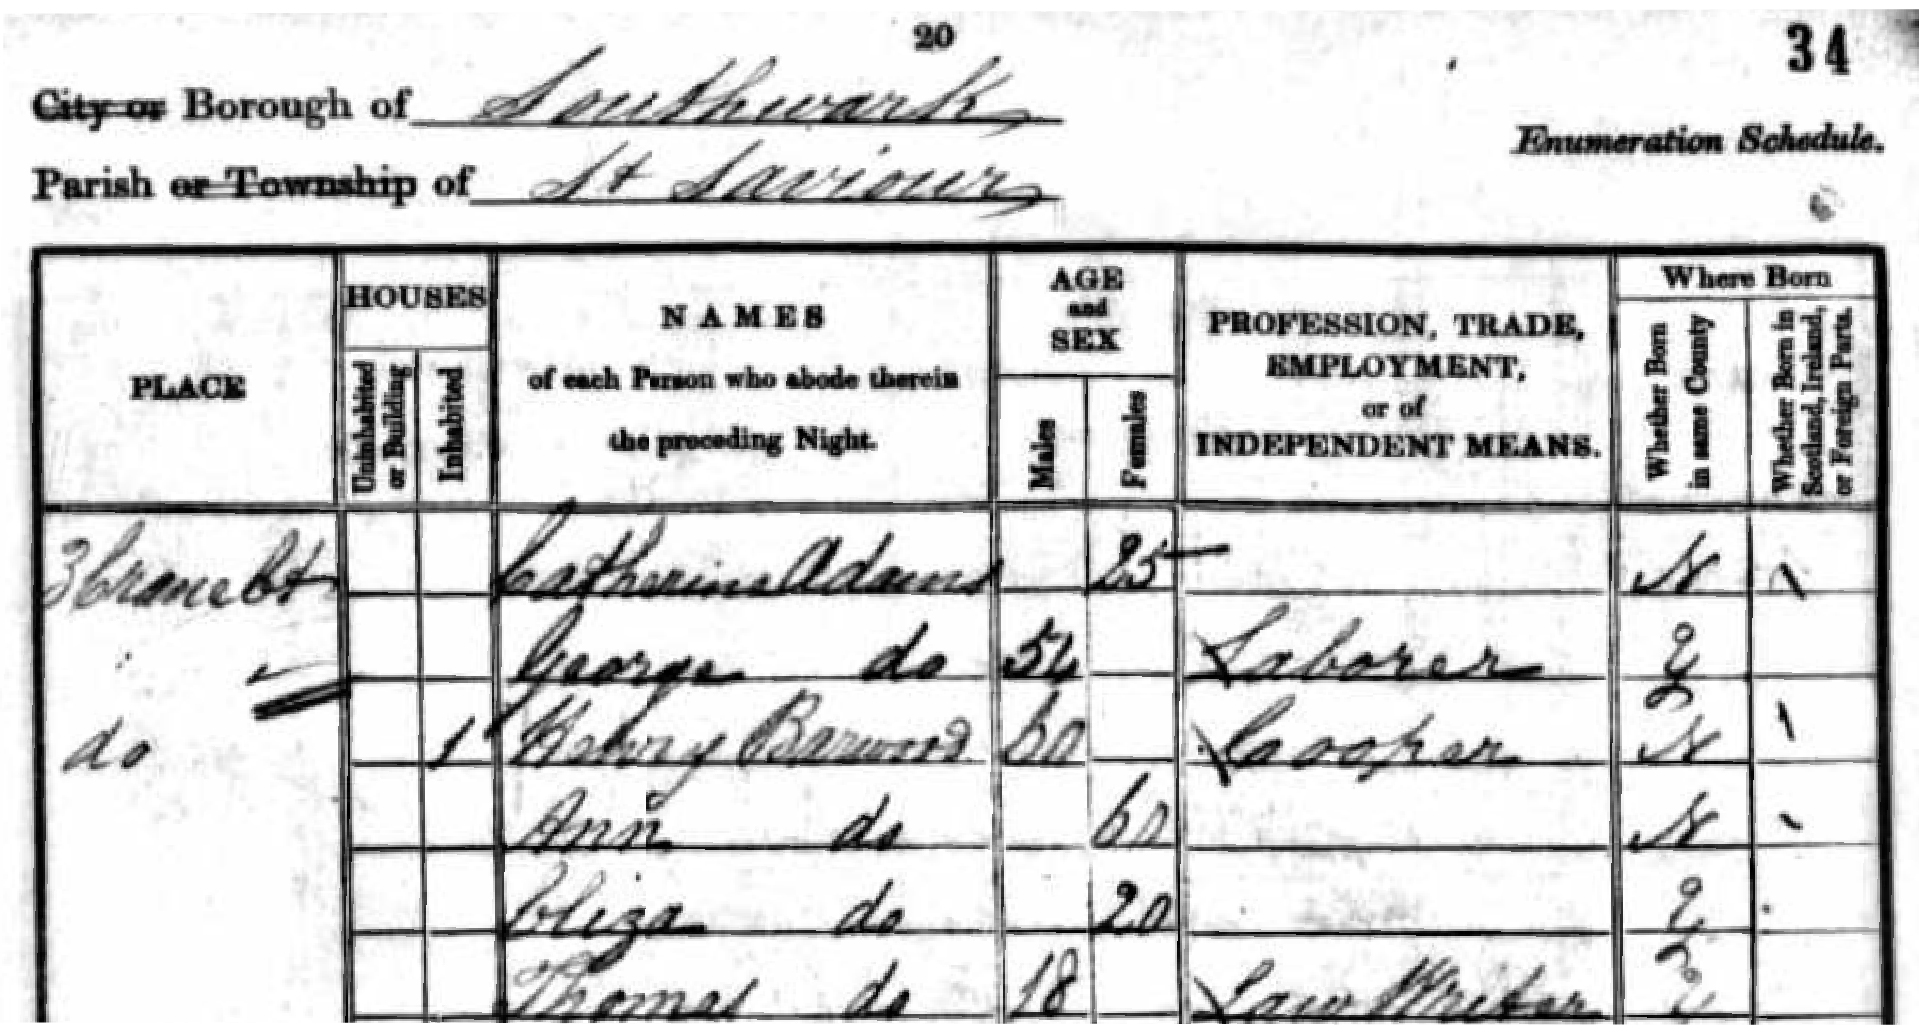 20
34
City or Borough of Southwark
Enumeration Schedule.
Parish or Township of St Saviours
PLACE
HOUSES
Uninhabited or Building
Inhabited
NAMES
of each Person who abode therein
the preceding Night.
AGE
and
SEX
Males
Females
PROFESSION, TRADE,
EMPLOYMENT,
or of
INDEPENDENT MEANS.
Where Born
Whether Born in same County
Whether Born in Scotland, Ireland, or Foreign Parts.
3 Crane Ct Catherine Adams 25 N
George do Laborer Y
do 1 Henry Barwood 60 Cooper N
Ann do 60 N
Eliza do 20 Y
Thomas do 18 Law Writer Y